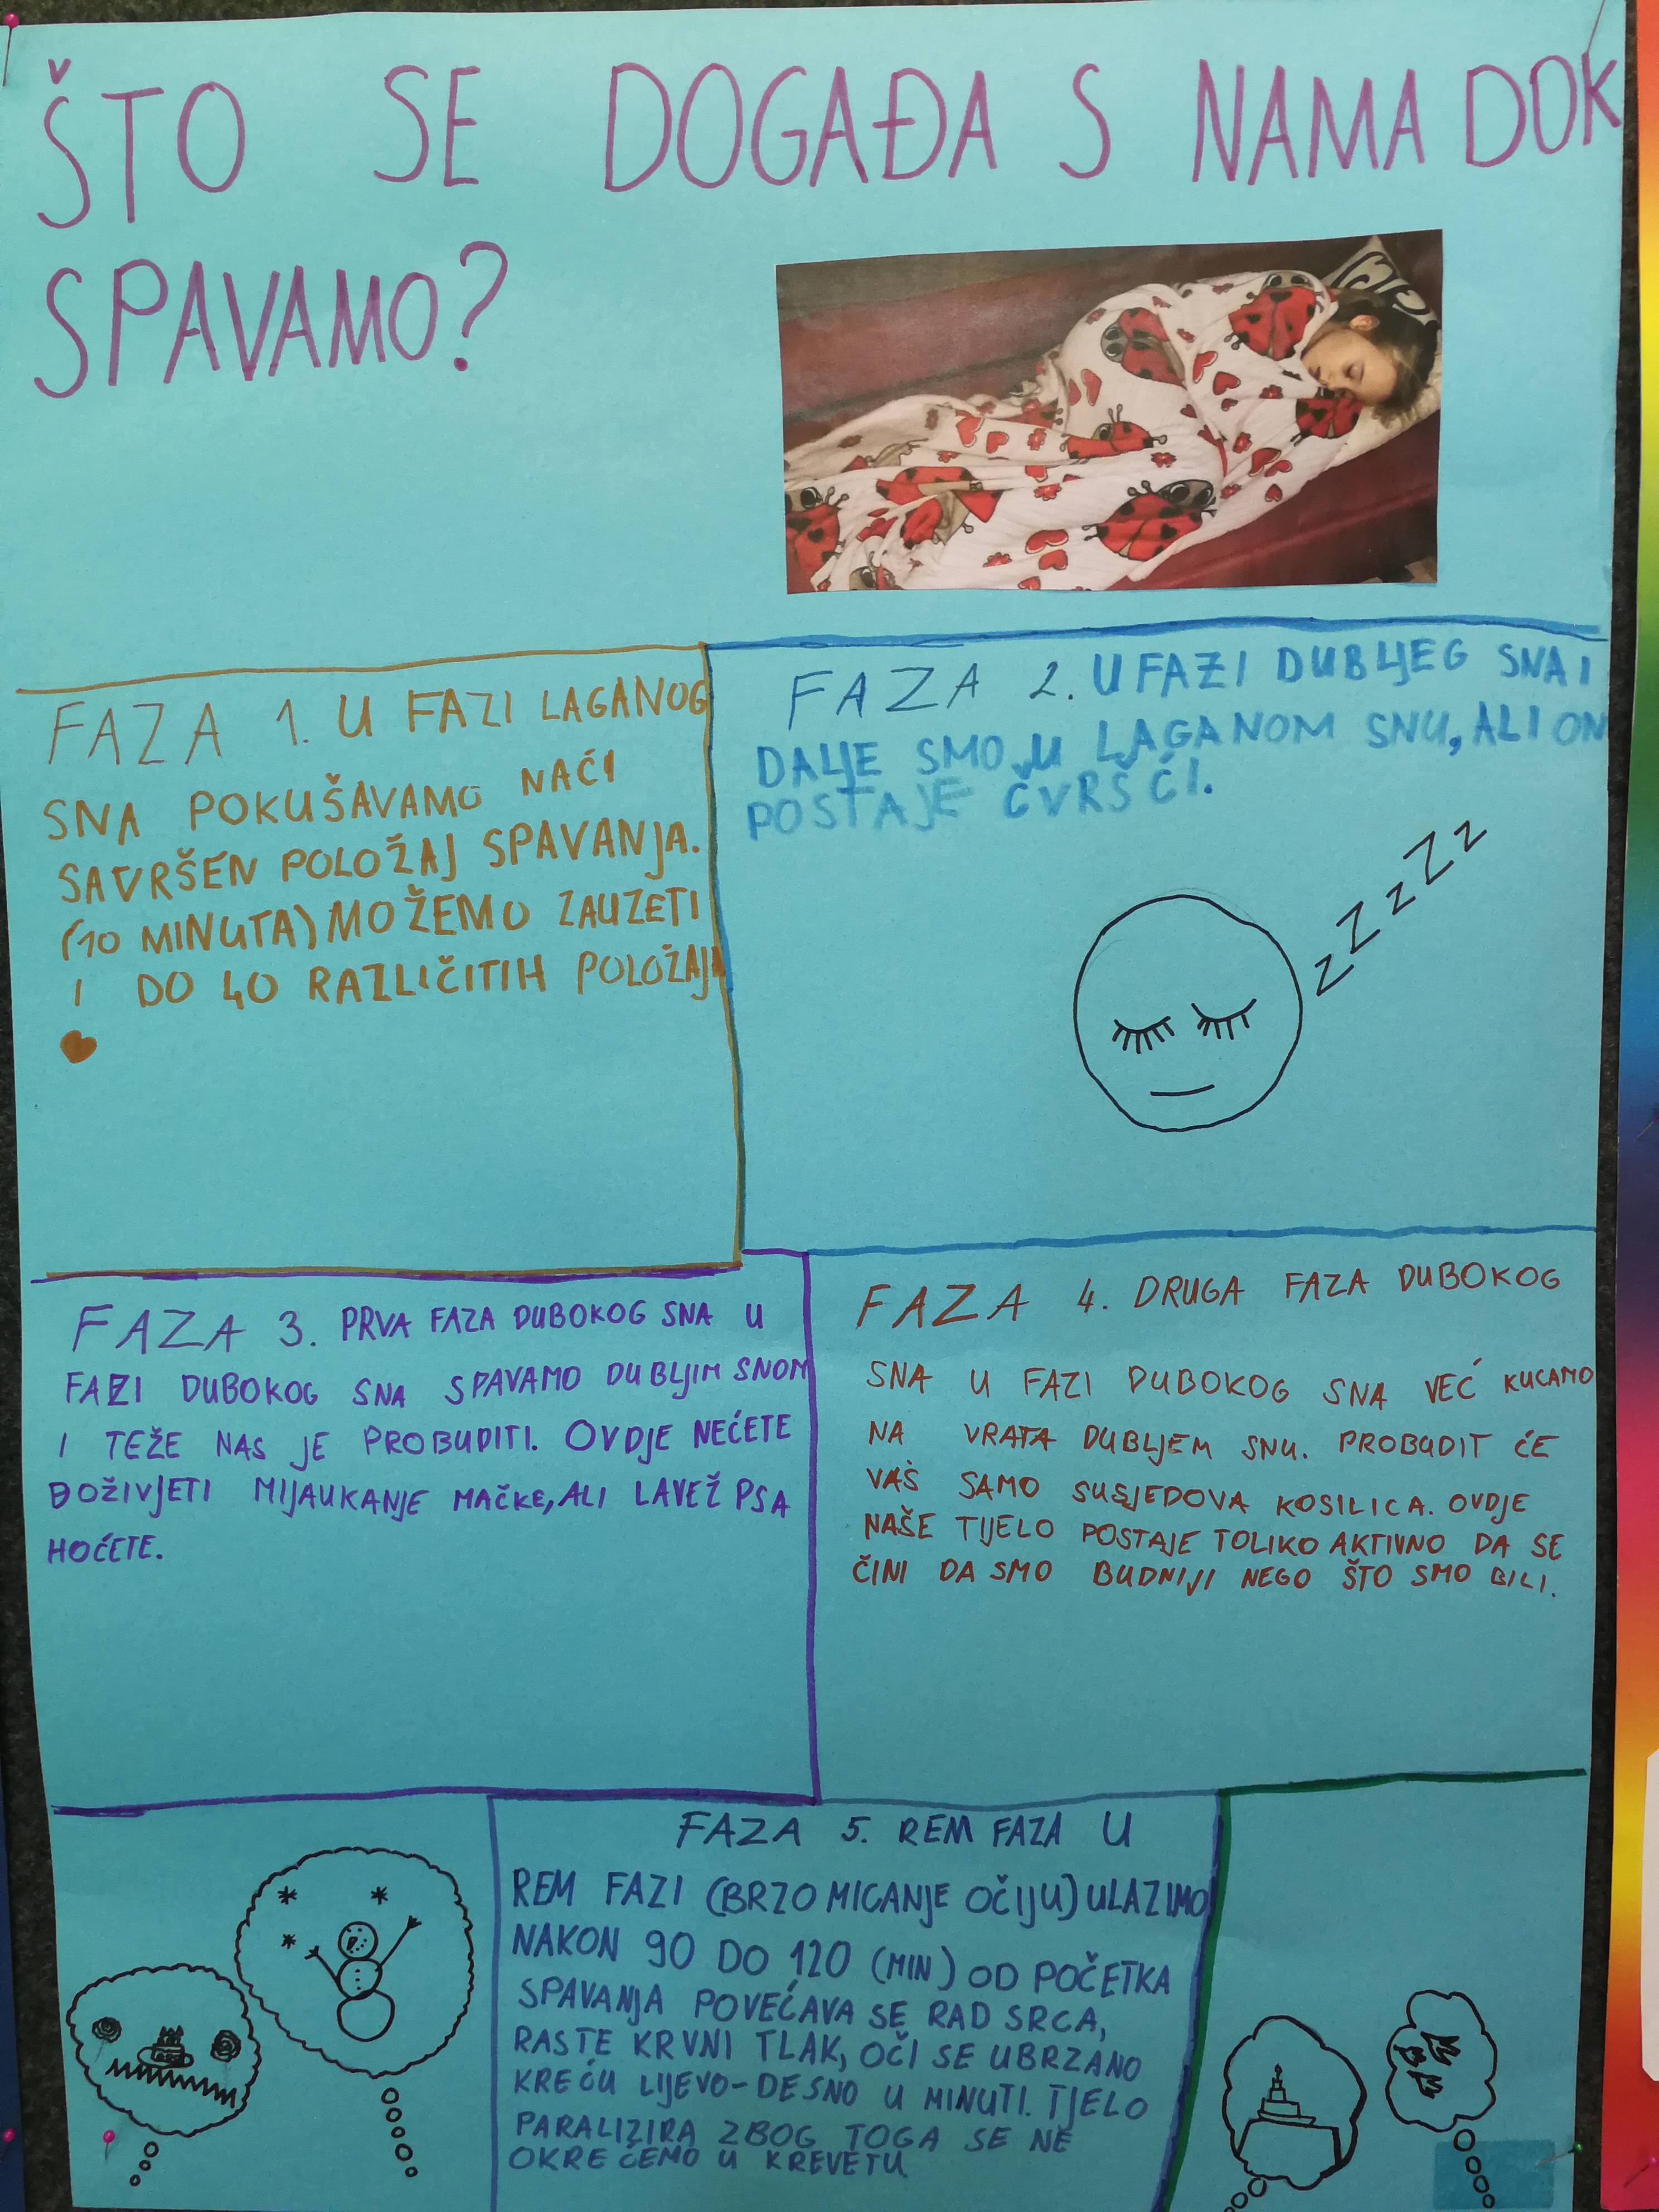 ŠTO SE DOGAĐA S NAMA DOK
SPAVAMO?
FAZA 1. U FAZI LAGANOG
SNA POKUŠAVAMO NAĆI
SAVRŠEN POLOŽAJ SPAVANJA.
(10 MINUTA) MOŽEMO ZAUZETI
I DO 40 RAZLIČITIH POLOŽAJA
FAZA 2. U FAZI DUBLJEG SNA I
DALJE SMO U LAGANOM SNU, ALI ON
POSTAJE ČVRŠĆI.
zZzZz
FAZA 3. PRVA FAZA DUBOKOG SNA U
FAZI DUBOKOG SNA SPAVAMO DUBLJIM SNOM
I TEŽE NAS JE PROBUDITI. OVDJE NEĆETE
DOŽIVJETI MIJAUKANJE MAČKE, ALI LAVEŽ PSA
HOĆETE.
FAZA 4. DRUGA FAZA DUBOKOG
SNA U FAZI DUBOKOG SNA VEĆ KUCAMO
NA VRATA DUBLJEM SNU. PROBUDIT ĆE
VAŠ SAMO SUSJEDOVA KOSILICA. OVDJE
NAŠE TIJELO POSTAJE TOLIKO AKTIVNO DA SE
ČINI DA SMO BUDNIJI NEGO ŠTO SMO BILI.
FAZA 5. REM FAZA U
REM FAZI (BRZO MICANJE OČIJU) ULAZIMO
NAKON 90 DO 120 (MIN) OD POČETKA
SPAVANJA POVEĆAVA SE RAD SRCA,
RASTE KRVNI TLAK, OČI SE UBRZANO
KREĆU LIJEVO-DESNO U MINUTI. TJELO
PARALIZIRA ZBOG TOGA SE NE
OKREĆEMO U KREVETU